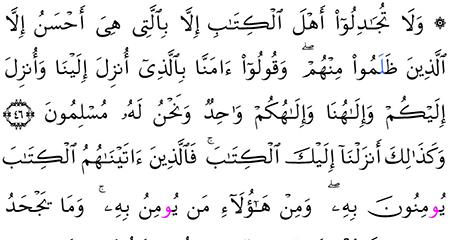 ۞ وَلَا تُجَـٰدِلُوٓا۟ أَهْلَ ٱلْكِتَـٰبِ إِلَّا بِٱلَّتِى هِىَ أَحْسَنُ إِلَّا
ٱلَّذِينَ ظَلَمُوا۟ مِنْهُمْ ۖ وَقُولُوٓا۟ ءَامَنَّا بِٱلَّذِىٓ أُنزِلَ إِلَيْنَا وَأُنزِلَ
إِلَيْكُمْ وَإِلَـٰهُنَا وَإِلَـٰهُكُمْ وَٰحِدٌ وَنَحْنُ لَهُۥ مُسْلِمُونَ ﴿٤٦﴾
وَكَذَٰلِكَ أَنزَلْنَآ إِلَيْكَ ٱلْكِتَـٰبَ ۚ فَٱلَّذِينَ ءَاتَيْنَـٰهُمُ ٱلْكِتَـٰبَ
يُومِنُونَ بِهِۦ ۖ وَمِنْ هَـٰٓؤُلَآءِ مَن يُومِنُ بِهِۦ ۚ وَمَا يَجْحَدُ